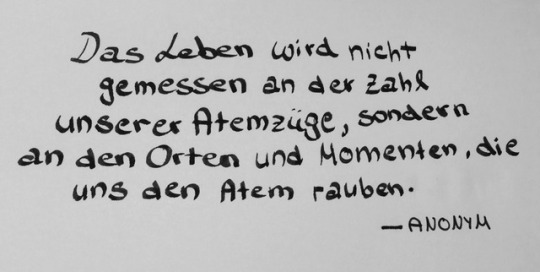 Das Leben wird nicht
gemessen an der Zahl
unserer Atemzüge, sondern
an den Orten und Momenten, die
uns den Atem rauben.
— ANONYM